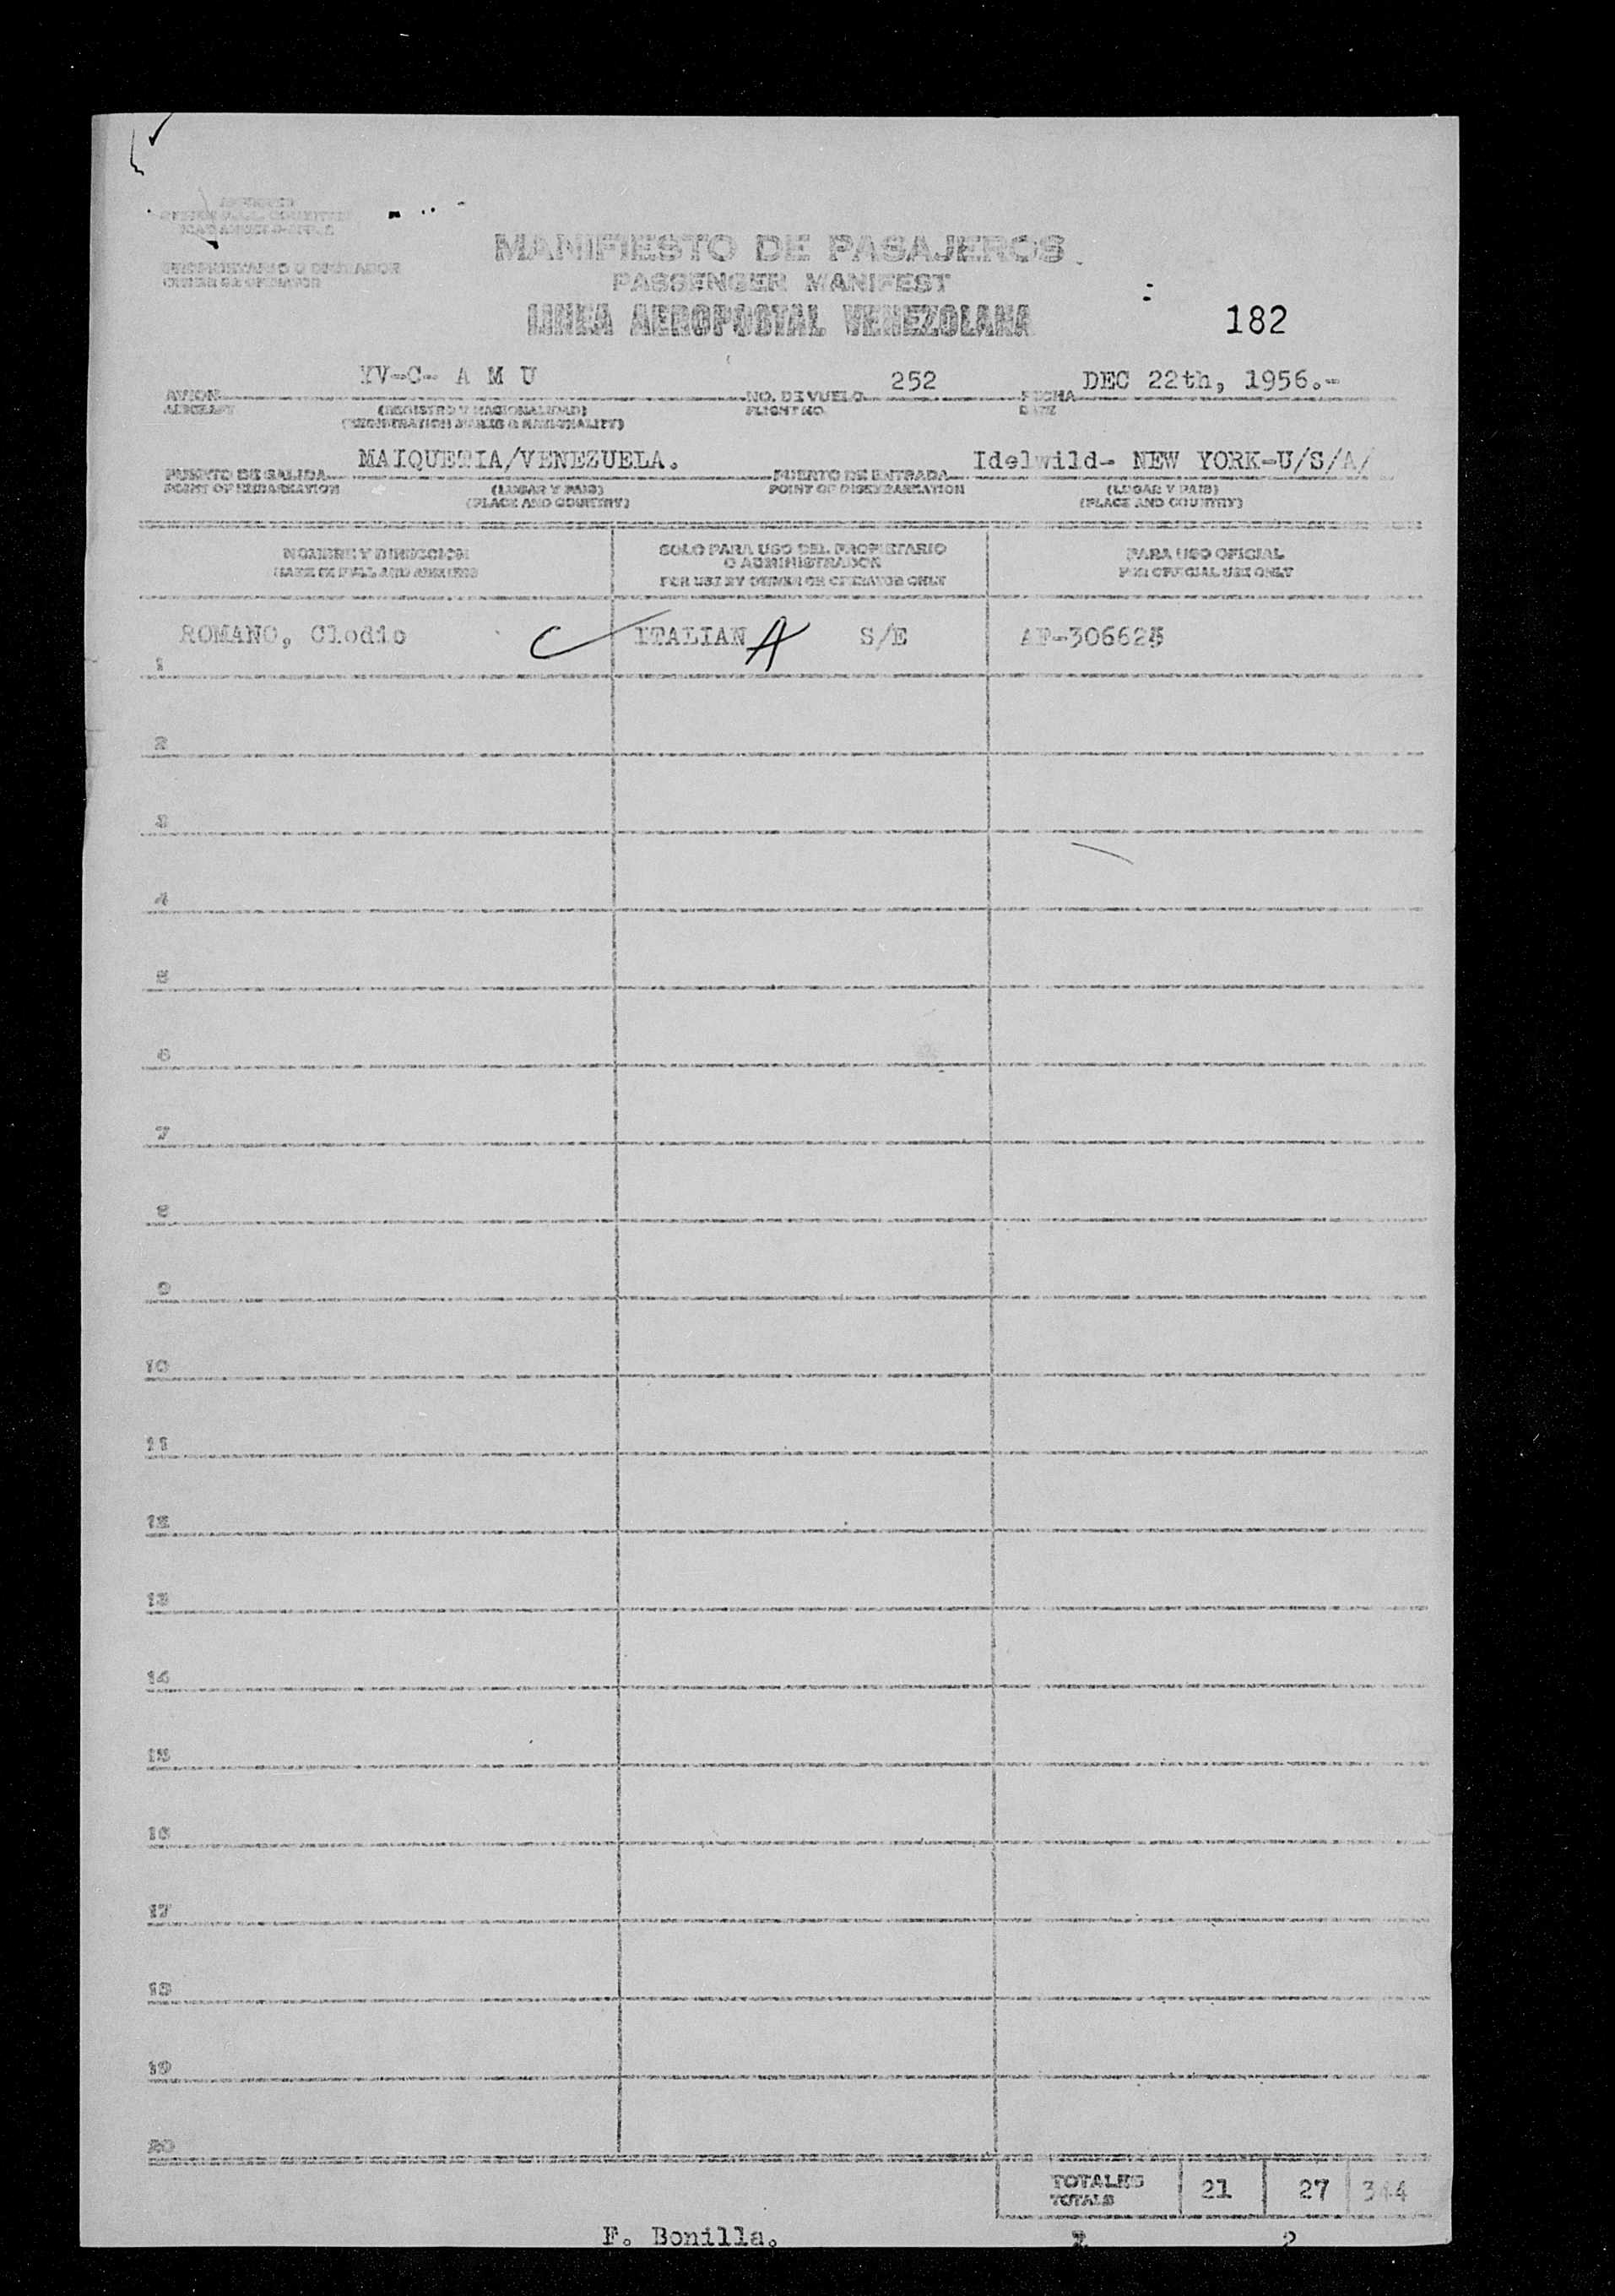 MANIFIESTO DE PASAJEROS
PASSENGER MANIFEST
LINEA AEROPOSTAL VENEZOLANA
182
PROPIETARIO U OPERADOR
OWNER OR OPERATOR
YV-C- A M U 252 DEC 22th, 1956.-
AVION NO. DE VUELO FECHA
AIRCRAFT (REGISTRO Y NACIONALIDAD) FLIGHT NO. DATE
(REGISTRATION MARKS & NATIONALITY)
MAIQUETIA/VENEZUELA. Idelwild- NEW YORK-U/S/A/
PUERTO DE SALIDA PUERTO DE ENTRADA
POINT OF EMBARKATION (LUGAR Y PAIS) POINT OF DISEMBARKATION (LUGAR Y PAIS)
(PLACE AND COUNTRY) (PLACE AND COUNTRY)
NOMBRE Y DIRECCION SOLO PARA USO DEL PROPIETARIO PARA USO OFICIAL
O ADMINISTRADOR
NAME IN FULL AND ADDRESS FOR USE BY OWNER OR OPERATOR ONLY FOR OFFICIAL USE ONLY
ROMANO, Clodio C ITALIAN A S/E AF-306625
1
2
3
4
5
6
7
8
9
10
11
12
13
14
15
16
17
18
19
20
TOTALES 21 27 344
TOTALS
F. Bonilla. 2